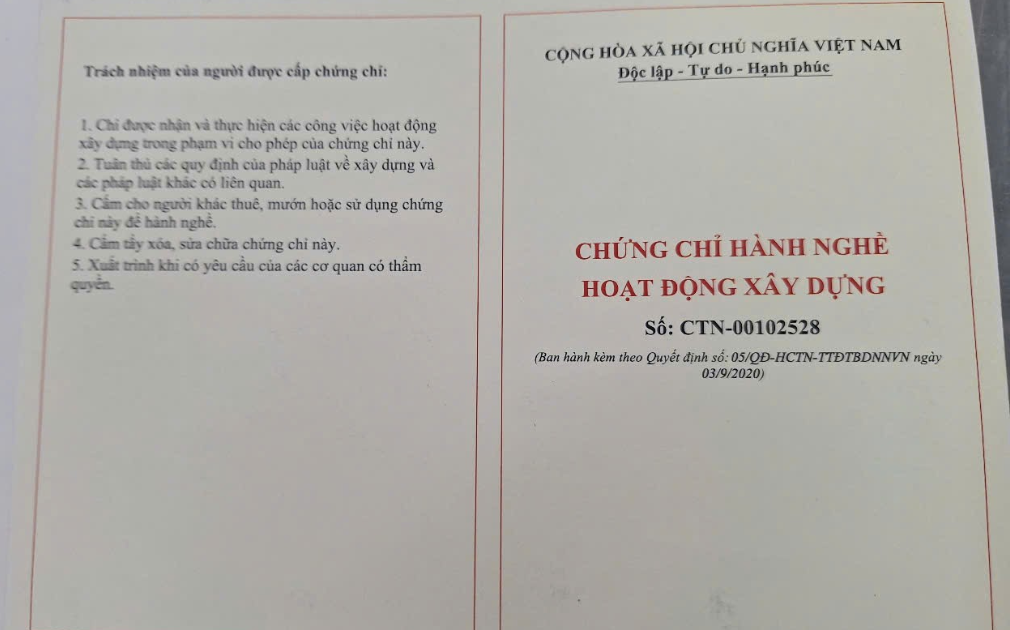 Trách nhiệm của người được cấp chứng chỉ:
1. Chỉ được nhận và thực hiện các công việc hoạt động
xây dựng trong phạm vi cho phép của chứng chỉ này.
2. Tuân thủ các quy định của pháp luật về xây dựng và
các pháp luật khác có liên quan.
3. Cấm cho người khác thuê, mướn hoặc sử dụng chứng
chỉ này để hành nghề.
4. Cấm tẩy xóa, sửa chữa chứng chỉ này.
5. Xuất trình khi có yêu cầu của các cơ quan có thẩm
quyền.
CỘNG HÒA XÃ HỘI CHỦ NGHĨA VIỆT NAM
Độc lập - Tự do - Hạnh phúc
CHỨNG CHỈ HÀNH NGHỀ
HOẠT ĐỘNG XÂY DỰNG
Số: CTN-00102528
(Ban hành kèm theo Quyết định số: 05/QĐ-HCTN-TTĐTBDNNVN ngày
03/9/2020)